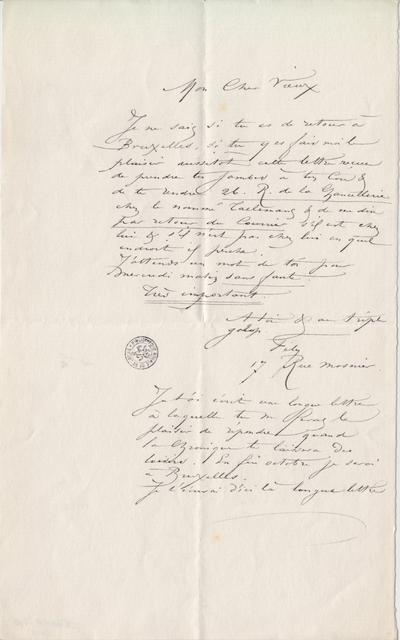 Mon Cher Vieux
Je ne sais si tu es de retour à
Bruxelles, si tu y es fais moi le
plaisir aussitôt cette lettre reçue
de prendre tes jambes à ton Cou &
de te rendre 26. R. de la Chancellerie
chez le nommé Taelemans & de me dire
par retour du Courrier s'il est chez
lui & s'il n'est pas chez lui en quel
endroit il perche.
J'attends un mot de toi pour
mercredi matin sans faute.
Très important.
A toi & au triple
galop.
Fély
17 Rue Mosnier.
Je t'ai écrit une longue lettre
à laquelle tu me feras le
plaisir de répondre quand
la Chronique te laissera des
loisirs. En fin octobre je serai
à Bruxelles.
Je t'écrirai d'ici là longue lettre